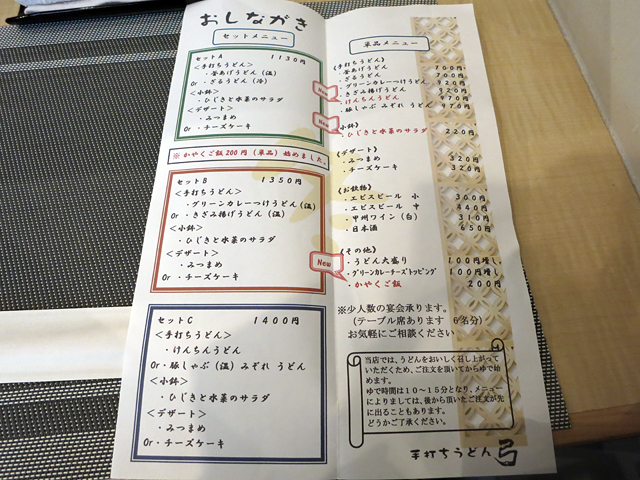 おしながき
セットメニュー
セットA 1130円
<手打ちうどん>
・釜あげうどん(温)
Or ・ざるうどん(冷)
<小鉢>
・ひじきと水菜のサラダ
<デザート>
・みつまめ
Or ・チーズケーキ
※かやくご飯200円(単品)始めました。
セットB 1350円
<手打ちうどん>
・グリーンカレーつけうどん(温)
Or ・きざみ揚げうどん(温)
<小鉢>
・ひじきと水菜のサラダ
<デザート>
・みつまめ
Or ・チーズケーキ
セットC 1400円
<手打ちうどん>
・けんちんうどん
Or・豚しゃぶ(温)みぞれ うどん
<小鉢>
・ひじきと水菜のサラダ
<デザート>
・みつまめ
Or ・チーズケーキ
単品メニュー
(手打ちうどん)
・釜あげうどん 700円
・ざるうどん 700円
・グリーンカレーつけうどん 920円
・きざみ揚げうどん 920円
New
・けんちんうどん 970円
・豚しゃぶ みぞれ うどん 970円
New
(小鉢)
・ひじきと水菜のサラダ 220円
(デザート)
・みつまめ 320円
・チーズケーキ 320円
(お飲物)
・エビスビール 小 300円
・エビスビール 中 440円
・甲州ワイン(白) 310円
・日本酒 650円
(その他)
・うどん大盛り 100円増し
New
・グリーンカレーチーズトッピング 100円増し
・かやくご飯 200円
※少人数の宴会承ります。
(テーブル席あります 6名分)
お気軽にご相談ください
当店では、うどんをおいしく召し上がって
いただくため、ご注文を頂いてからゆで始
めます。
ゆで時間は10～15分となり、メニュー
によりましては、後から頂いたご注文が先
に出ることもあります。
どうかご了承ください。
手打ちうどん 弓